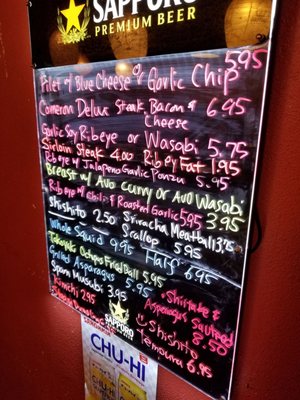 SAPPORO
PREMIUM BEER
5.95
Filet w/ Blue Cheese or Garlic Chip
Cameron Delux Steak Bacon & 6.95
Cheese
Garlic Soy Ribeye or Wasabi 5.75
Sirloin Steak 4.00 Rib eye Fat 1.95
Ribeye w/ Jalapeno Garlic Ponzu 5.95
Breast w/ Avo Curry or Avo Wasabi
Ribeye w/ Chili & Roasted Garlic 5.95 3.95
Shishito 2.50 Sriracha Meatball 3.75
Scallop 5.95
Whole Squid 9.95 Half 6.95
Takoyaki Octopus Fried Ball 5.95
Grilled Asparagus 5.95
Spam Musubi 3.95
Kimchi 2.95
Shiitake &
Asparagus Sauteed
8.50
Shishito
Tempura 6.95
SAPPORO
CHU-HI